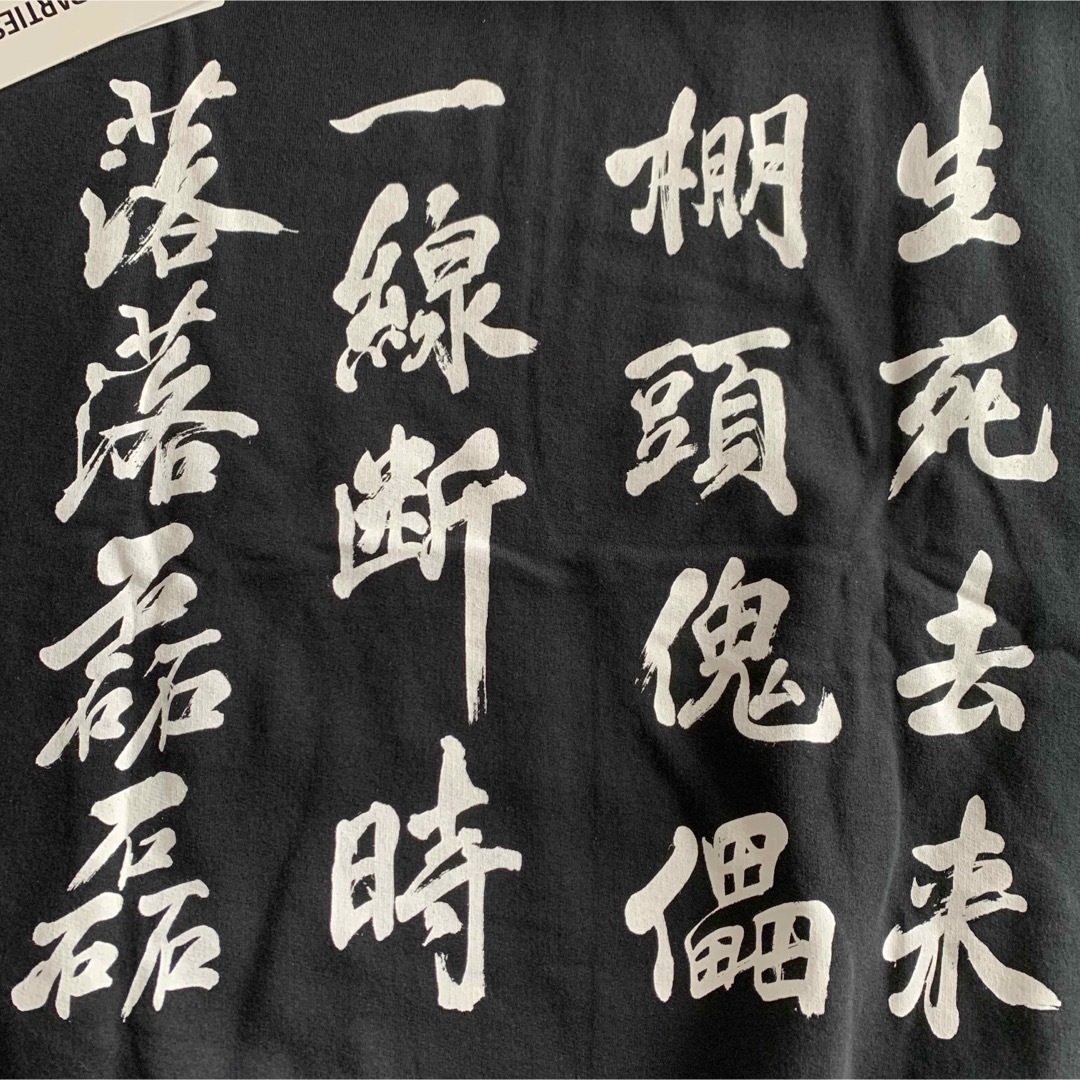 生死去来
棚頭傀儡
一線断時
落落磊磊
PARTIES